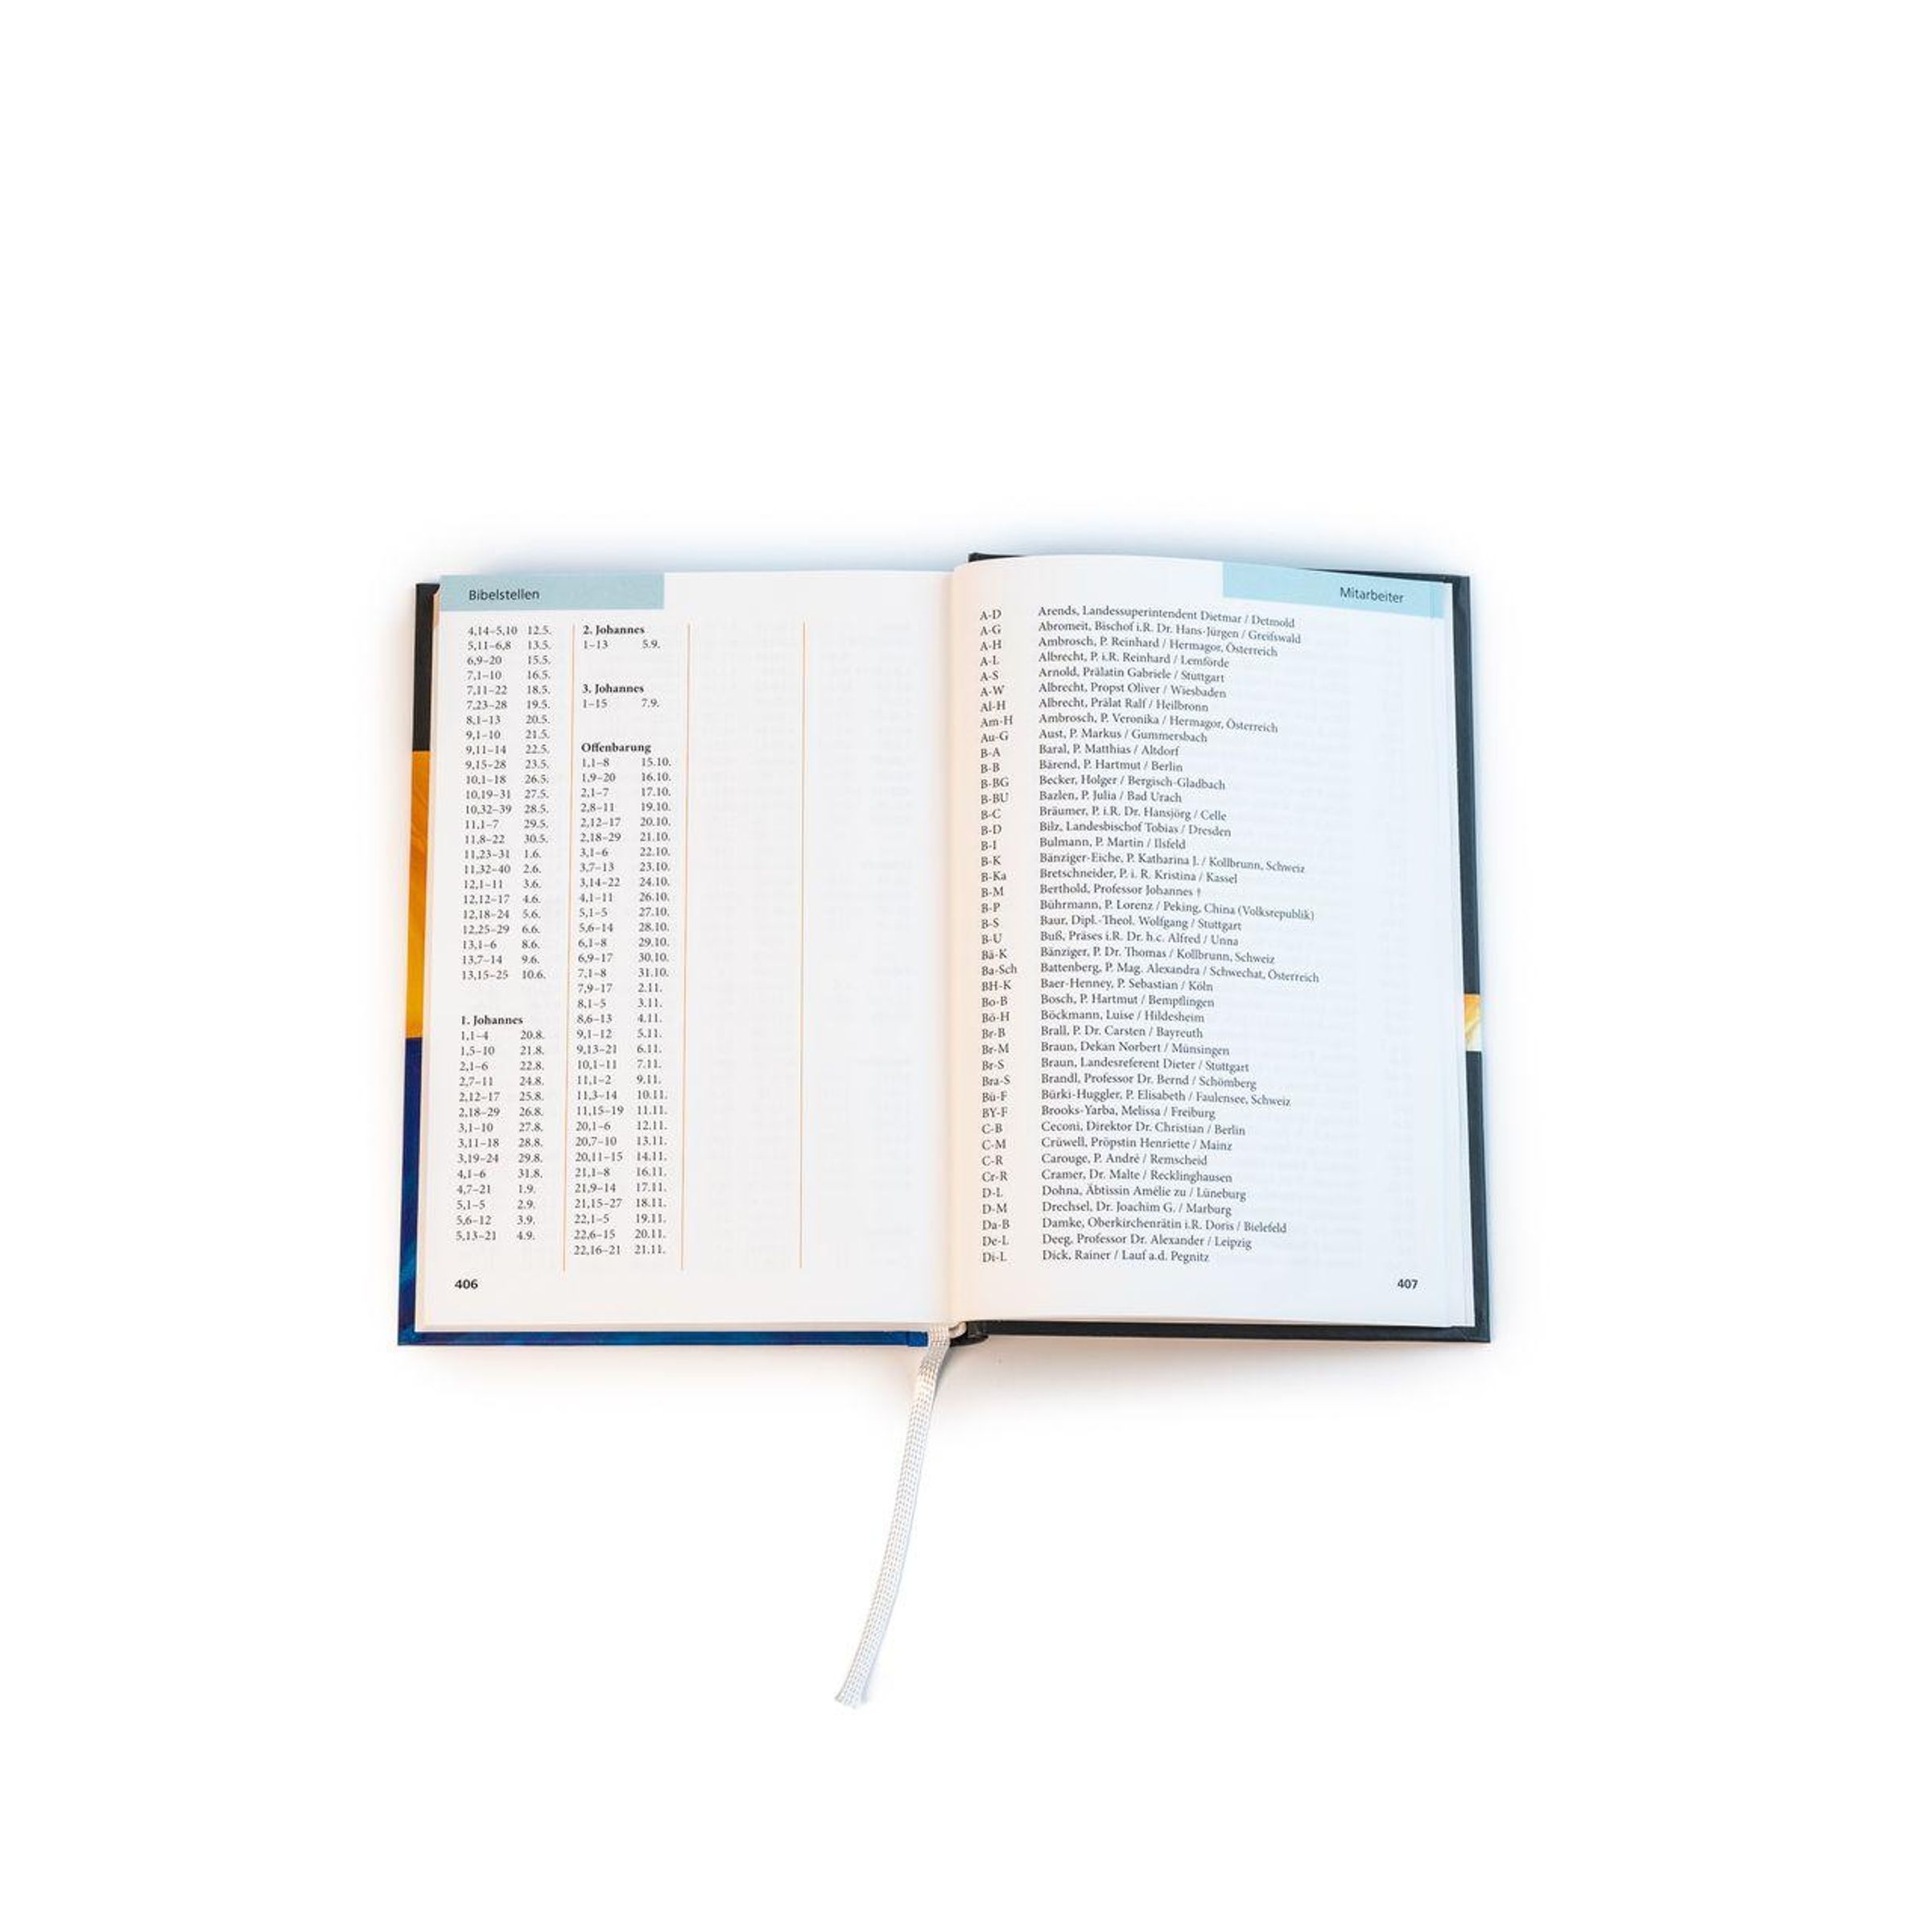 Bibelstellen
4,14–5,10 12.5.
5,11–6,8 13.5.
6,9–20 15.5.
7,1–10 16.5.
7,11–22 18.5.
7,23–28 19.5.
8,1–13 20.5.
9,1–10 21.5.
9,11–14 22.5.
9,15–28 23.5.
10,1–18 26.5.
10,19–31 27.5.
10,32–39 28.5.
11,1–7 29.5.
11,8–22 30.5.
11,23–31 1.6.
11,32–40 2.6.
12,1–11 3.6.
12,12–17 4.6.
12,18–24 5.6.
12,25–29 6.6.
13,1–6 8.6.
13,7–14 9.6.
13,15–25 10.6.
1. Johannes
1,1–4 20.8.
1,5–10 21.8.
2,1–6 22.8.
2,7–11 24.8.
2,12–17 25.8.
2,18–29 26.8.
3,1–10 27.8.
3,11–18 28.8.
3,19–24 29.8.
4,1–6 31.8.
4,7–21 1.9.
5,1–5 2.9.
5,6–12 3.9.
5,13–21 4.9.
2. Johannes
1–13 5.9.
3. Johannes
1–15 7.9.
Offenbarung
1,1–8 15.10.
1,9–20 16.10.
2,1–7 17.10.
2,8–11 19.10.
2,12–17 20.10.
2,18–29 21.10.
3,1–6 22.10.
3,7–13 23.10.
3,14–22 24.10.
4,1–11 26.10.
5,1–5 27.10.
5,6–14 28.10.
6,1–8 29.10.
6,9–17 30.10.
7,1–8 31.10.
7,9–17 2.11.
8,1–5 3.11.
8,6–13 4.11.
9,1–12 5.11.
9,13–21 6.11.
10,1–11 7.11.
11,1–2 9.11.
11,3–14 10.11.
11,15–19 11.11.
20,1–6 12.11.
20,7–10 13.11.
20,11–15 14.11.
21,1–8 16.11.
21,9–14 17.11.
21,15–27 18.11.
22,1–5 19.11.
22,6–15 20.11.
22,16–21 21.11.
406
Mitarbeiter
A-D Arends, Landessuperintendent Dietmar / Detmold
A-G Abromeit, Bischof i.R. Dr. Hans-Jürgen / Greifswald
A-H Ambrosch, P. Reinhard / Hermagor, Österreich
A-L Albrecht, P. i.R. Reinhard / Lemförde
A-S Arnold, Prälatin Gabriele / Stuttgart
A-W Albrecht, Propst Oliver / Wiesbaden
Al-H Albrecht, Prälat Ralf / Heilbronn
Am-H Ambrosch, P. Veronika / Hermagor, Österreich
Au-G Aust, P. Markus / Gummersbach
B-A Baral, P. Matthias / Altdorf
B-B Bärend, P. Hartmut / Berlin
B-BG Becker, Holger / Bergisch-Gladbach
B-BU Bazlen, P. Julia / Bad Urach
B-C Bräumer, P. i.R. Dr. Hansjörg / Celle
B-D Bilz, Landesbischof Tobias / Dresden
B-I Bulmann, P. Martin / Ilsfeld
B-K Bänziger-Eiche, P. Katharina J. / Kollbrunn, Schweiz
B-Ka Bretschneider, P. i. R. Kristina / Kassel
B-M Berthold, Professor Johannes †
B-P Bührmann, P. Lorenz / Peking, China (Volksrepublik)
B-S Baur, Dipl.-Theol. Wolfgang / Stuttgart
B-U Buß, Präses i.R. Dr. h.c. Alfred / Unna
Bä-K Bänziger, P. Dr. Thomas / Kollbrunn, Schweiz
Ba-Sch Battenberg, P. Mag. Alexandra / Schwechat, Österreich
BH-K Baer-Henney, P. Sebastian / Köln
Bo-B Bosch, P. Hartmut / Bempflingen
Bö-H Böckmann, Luise / Hildesheim
Br-B Brall, P. Dr. Carsten / Bayreuth
Br-M Braun, Dekan Norbert / Münsingen
Br-S Braun, Landesreferent Dieter / Stuttgart
Bra-S Brandl, Professor Dr. Bernd / Schömberg
Bü-F Bürki-Huggler, P. Elisabeth / Faulensee, Schweiz
BY-F Brooks-Yarba, Melissa / Freiburg
C-B Ceconi, Direktor Dr. Christian / Berlin
C-M Crüwell, Pröpstin Henriette / Mainz
C-R Carouge, P. André / Remscheid
Cr-R Cramer, Dr. Malte / Recklinghausen
D-L Dohna, Äbtissin Amélie zu / Lüneburg
D-M Drechsel, Dr. Joachim G. / Marburg
Da-B Damke, Oberkirchenrätin i.R. Doris / Bielefeld
De-L Deeg, Professor Dr. Alexander / Leipzig
Di-L Dick, Rainer / Lauf a.d. Pegnitz
407